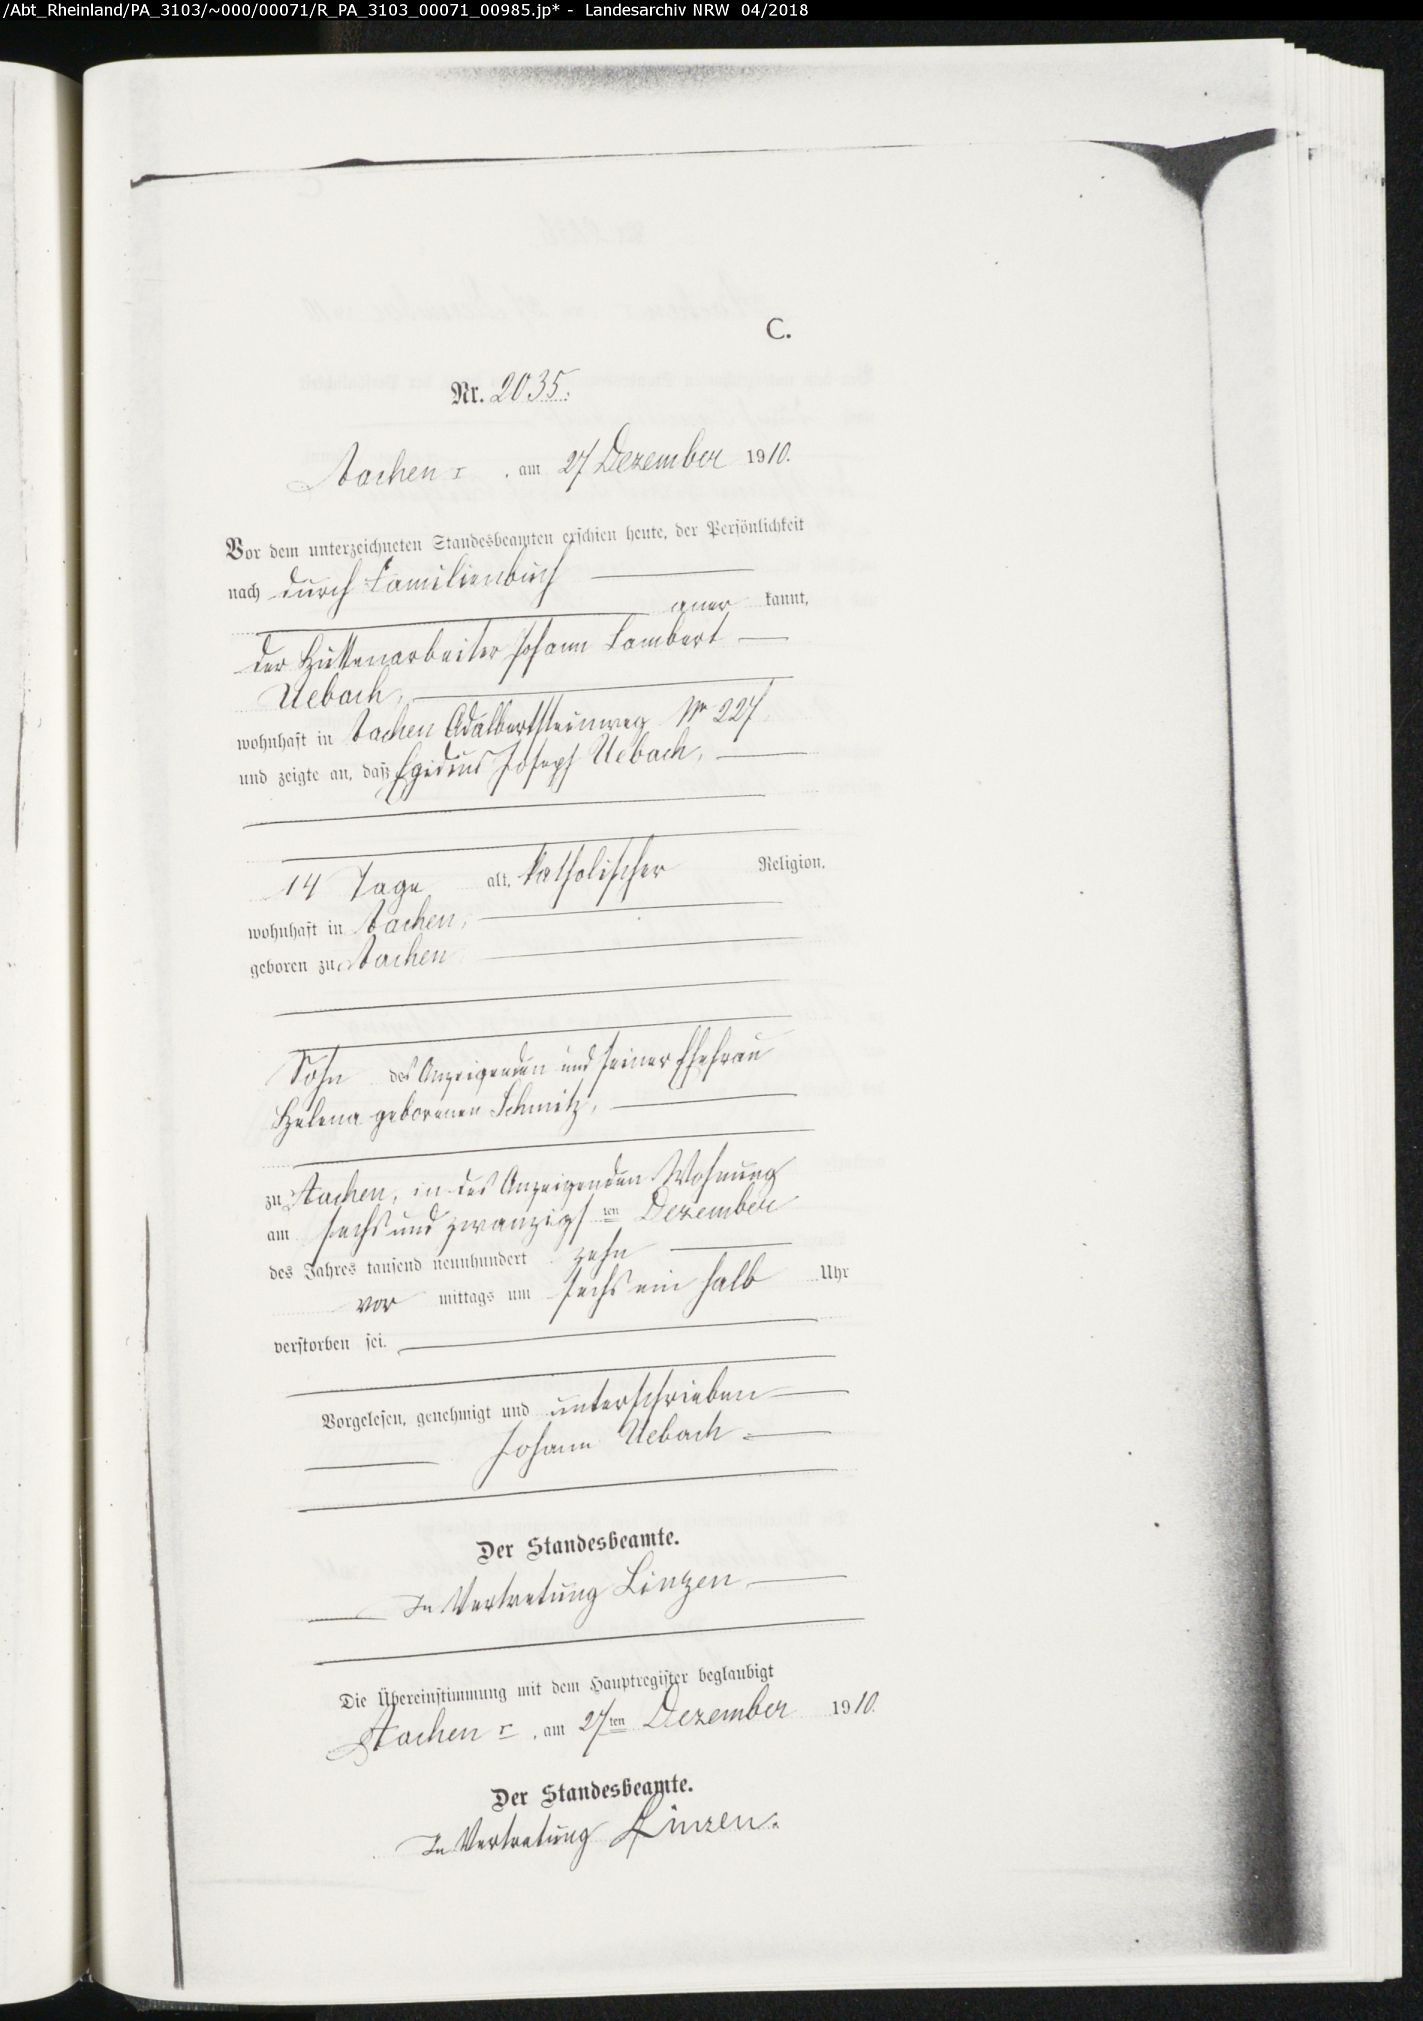 /Abt_Rheinland/PA_3103/~000/00071/R_PA_3103_00071_00985.jp* - Landesarchiv NRW 04/2018
C.
Nr. 2035.
Aachen I, am 27 Dezember 1910.
Vor dem unterzeichneten Standesbeamten erschien heute, der Persönlichkeit
nach durch Familienbuch
aner kannt,
der Hüttenarbeiter Johann Lambert
Uebach,
wohnhaft in Aachen Adalbertsteinweg No 227,
und zeigte an, daß Egidius Joseph Uebach,
14 Tage alt, katholischer Religion,
wohnhaft in Aachen,
geboren zu Aachen
Sohn des Anzeigenden und seiner Ehefrau
Helena geborenen Schmitz,
zu Aachen, in des Anzeigenden Wohnung
am sechs und zwanzigsten Dezember
des Jahres tausend neunhundert zehn
vor mittags um sechs ein halb Uhr
verstorben sei.
Vorgelesen, genehmigt und unterschrieben
Johann Uebach
Der Standesbeamte.
In Vertretung Linzen
Die Übereinstimmung mit dem Hauptregister beglaubigt
Aachen I, am 27ten Dezember 1910.
Der Standesbeamte.
In Vertretung Linzen.